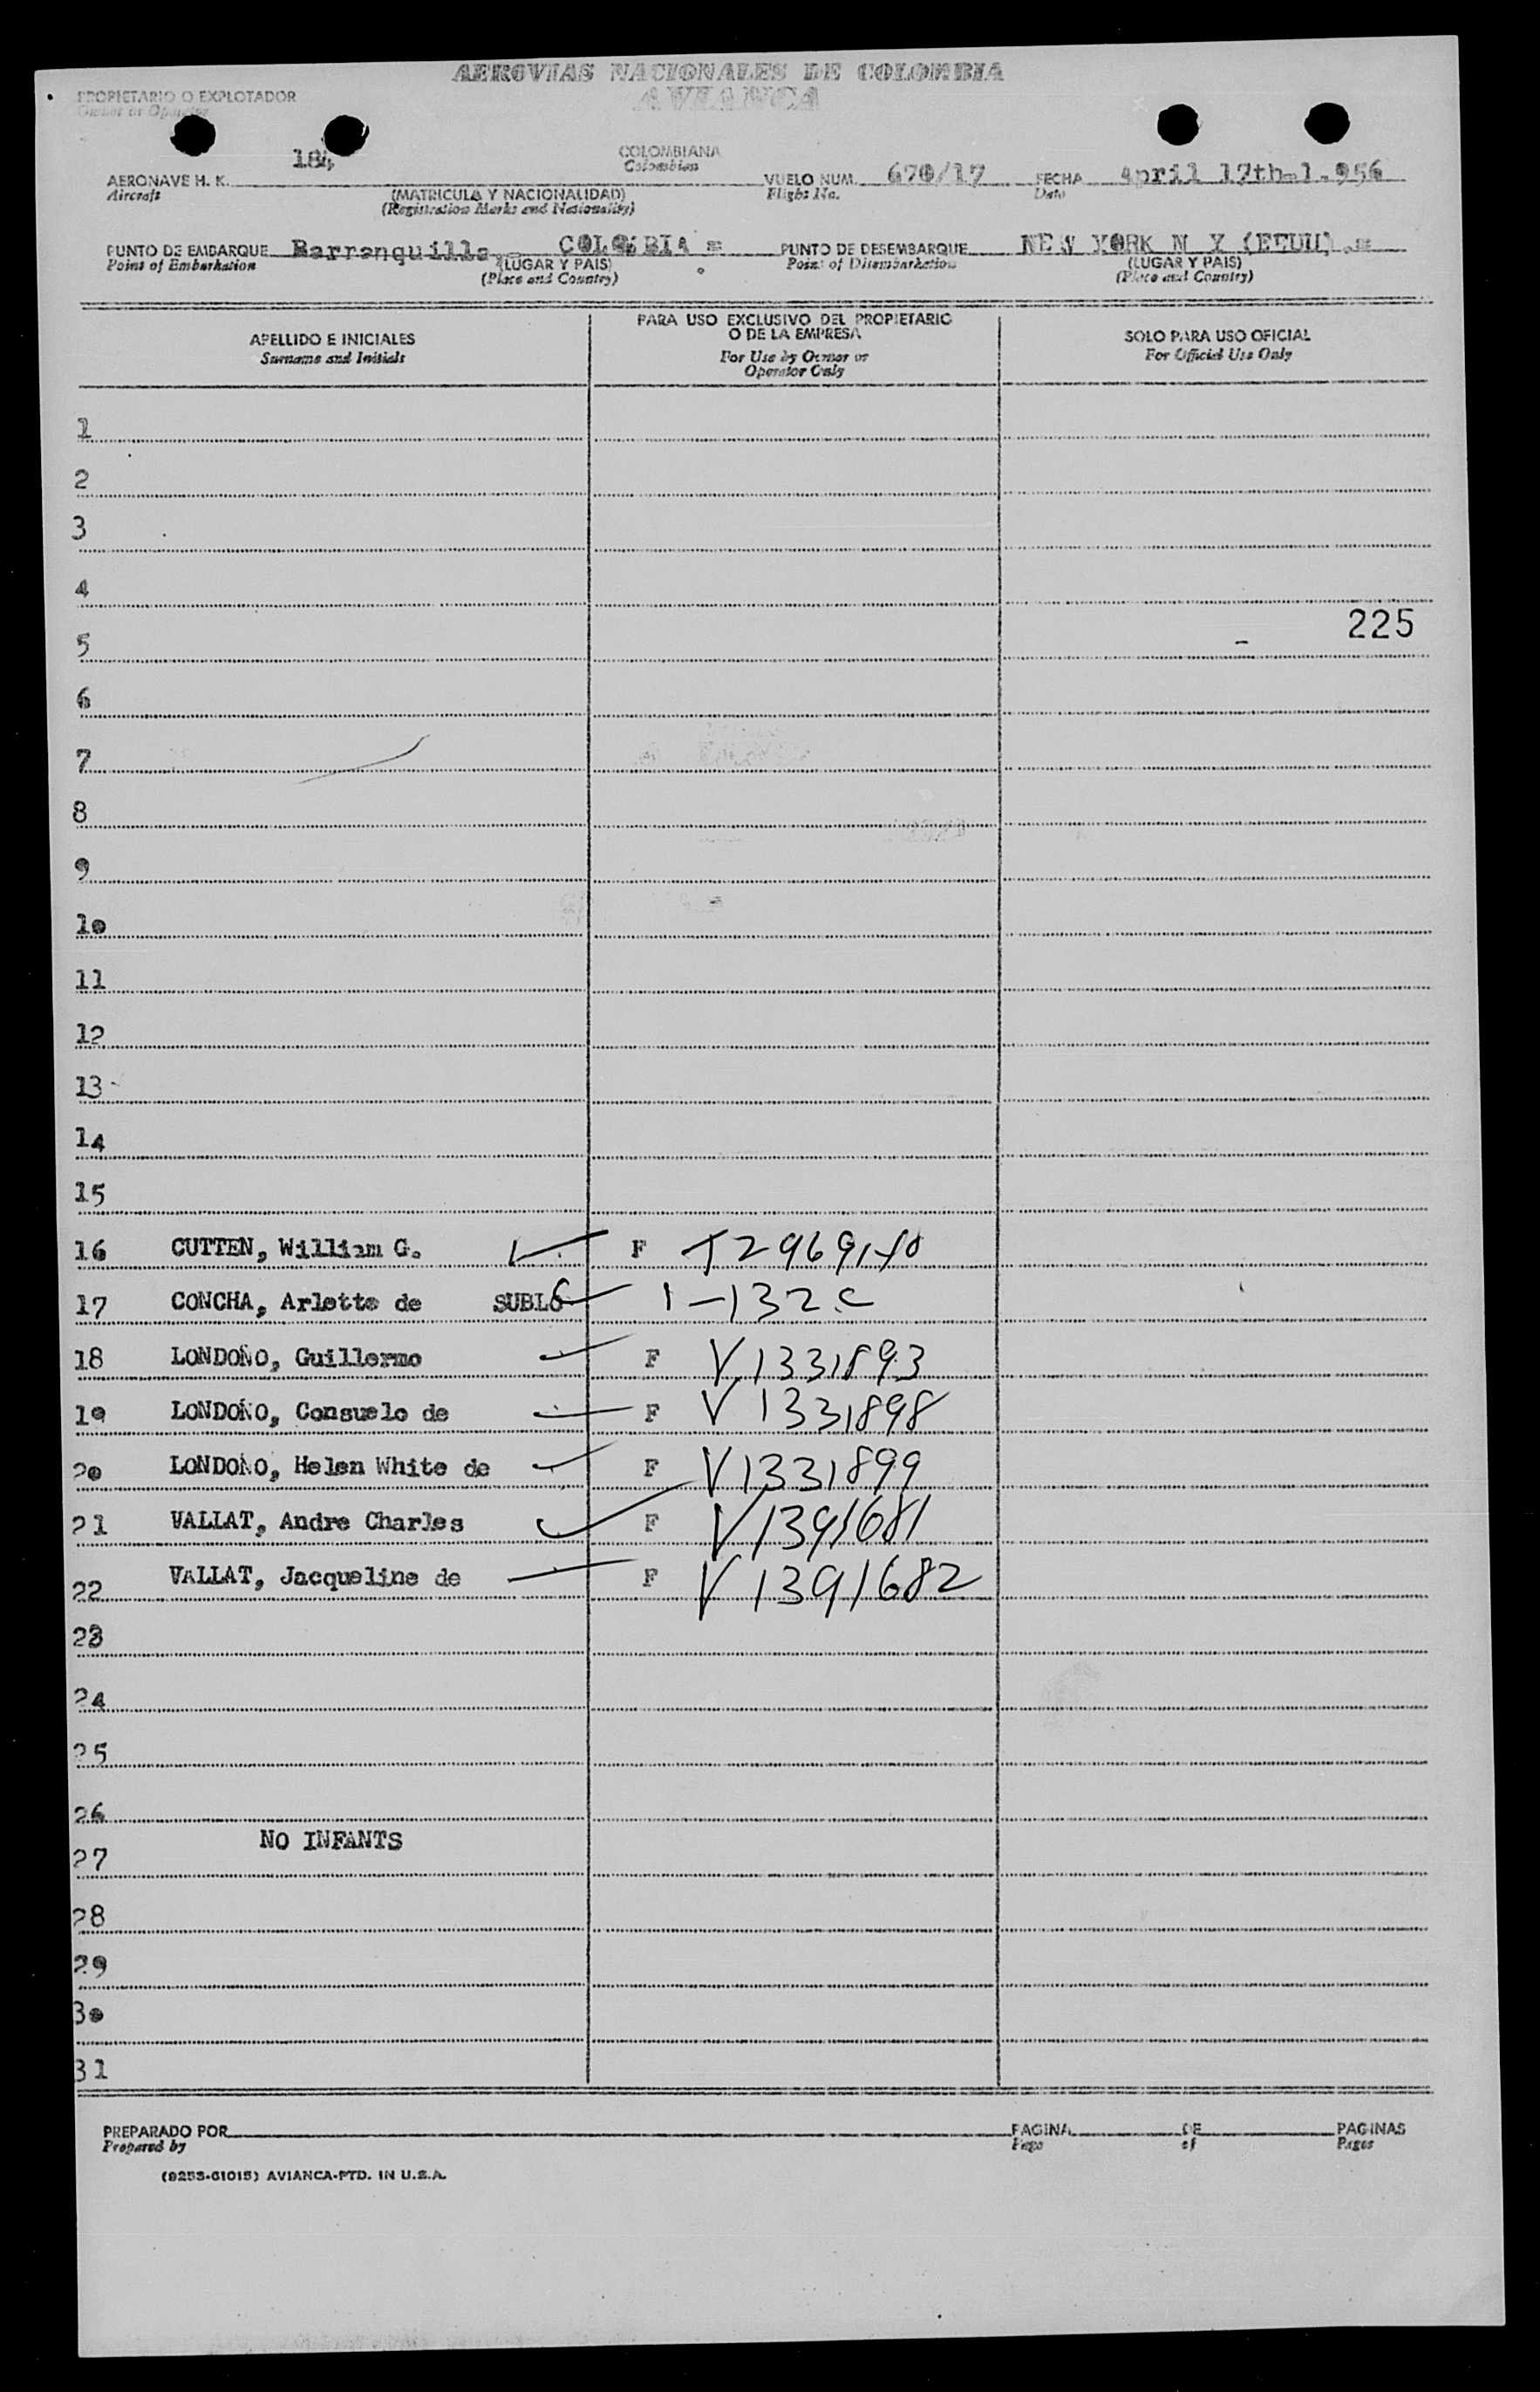 AEROVIAS NACIONALES DE COLOMBIA
AVIANCA
PROPIETARIO O EXPLOTADOR
Owner or Operator
AERONAVE H. K. 184 COLOMBIANA VUELO NUM. 670/17 FECHA April 17th-1.956
Aircraft Colombian Flight No. Date
(MATRICULA Y NACIONALIDAD)
(Registration Marks and Nationality)
PUNTO DE EMBARQUE Barranquilla COLOMBIA = PUNTO DE DESEMBARQUE NEW YORK N Y (EEUU).=
Point of Embarkation (LUGAR Y PAIS) Point of Disembarkation (LUGAR Y PAIS)
(Place and Country) (Place and Country)
APELLIDO E INICIALES
Surname and Initials
PARA USO EXCLUSIVO DEL PROPIETARIO
O DE LA EMPRESA
For Use by Owner or
Operator Only
SOLO PARA USO OFICIAL
For Official Use Only
1
2
3
4
225
5
6
7
8
9
10
11
12
13
14
15
16 CUTTEN, William G. F
17 CONCHA, Arlette de SUBLO 1-132C
18 LONDOÑO, Guillermo F V1331893
19 LONDOÑO, Consuelo de F V1331898
20 LONDOÑO, Helen White de F V1331899
21 VALLAT, Andre Charles F V1391681
22 VALLAT, Jacqueline de F V1391682
23
24
25
26
NO INFANTS
27
28
29
30
31
PREPARADO POR PAGINA DE PAGINAS
Prepared by Page of Pages
(9253-61015) AVIANCA-PTD. IN U.S.A.